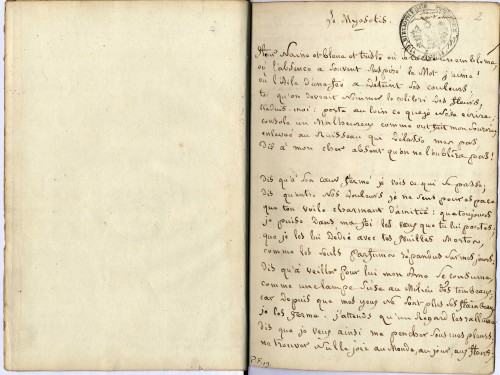 2
Le Myosotis.
Fleur Naine et bleue et triste où se
où l'absence a souvent Respiré le Mot j'aime!
où l'Aile d'une fée a Détaint ses couleurs;
toi qu'on devrait Nommer le colibri Des fleurs,
traduis-moi: porte au loin ce que je N'ose écrire;
console un Malheureux comme
enlevée au Ruisseau qui Délasse mes pas!
Dis à mon cher absent qu'on ne l'oubliera pas!
Dis qu'à Son cœur fermé je vois ce qui se passe;
Dis qu'entre Nos Douleurs je ne sens pour espace
que ton voile charmant d'amitié; que toujours
je puise Dans ma foi les vœux que tu lui portes:
que je les lui Dédie avec tes feuilles Mortes,
comme les seuls Parfums répandus sur mes jours.
Dis qu'à veiller Pour lui mon Ame se consume,
comme une lampe Usée au Milieu des tombeaux;
car Depuis que mes yeux Ne sont plus ses
je les ferme: j'attends qu'un Regard les rallume
Dis que je veux ainsi me pencher sous mes pleurs,
ne trouver Nulle joie au Monde, au jour, aux fleurs;